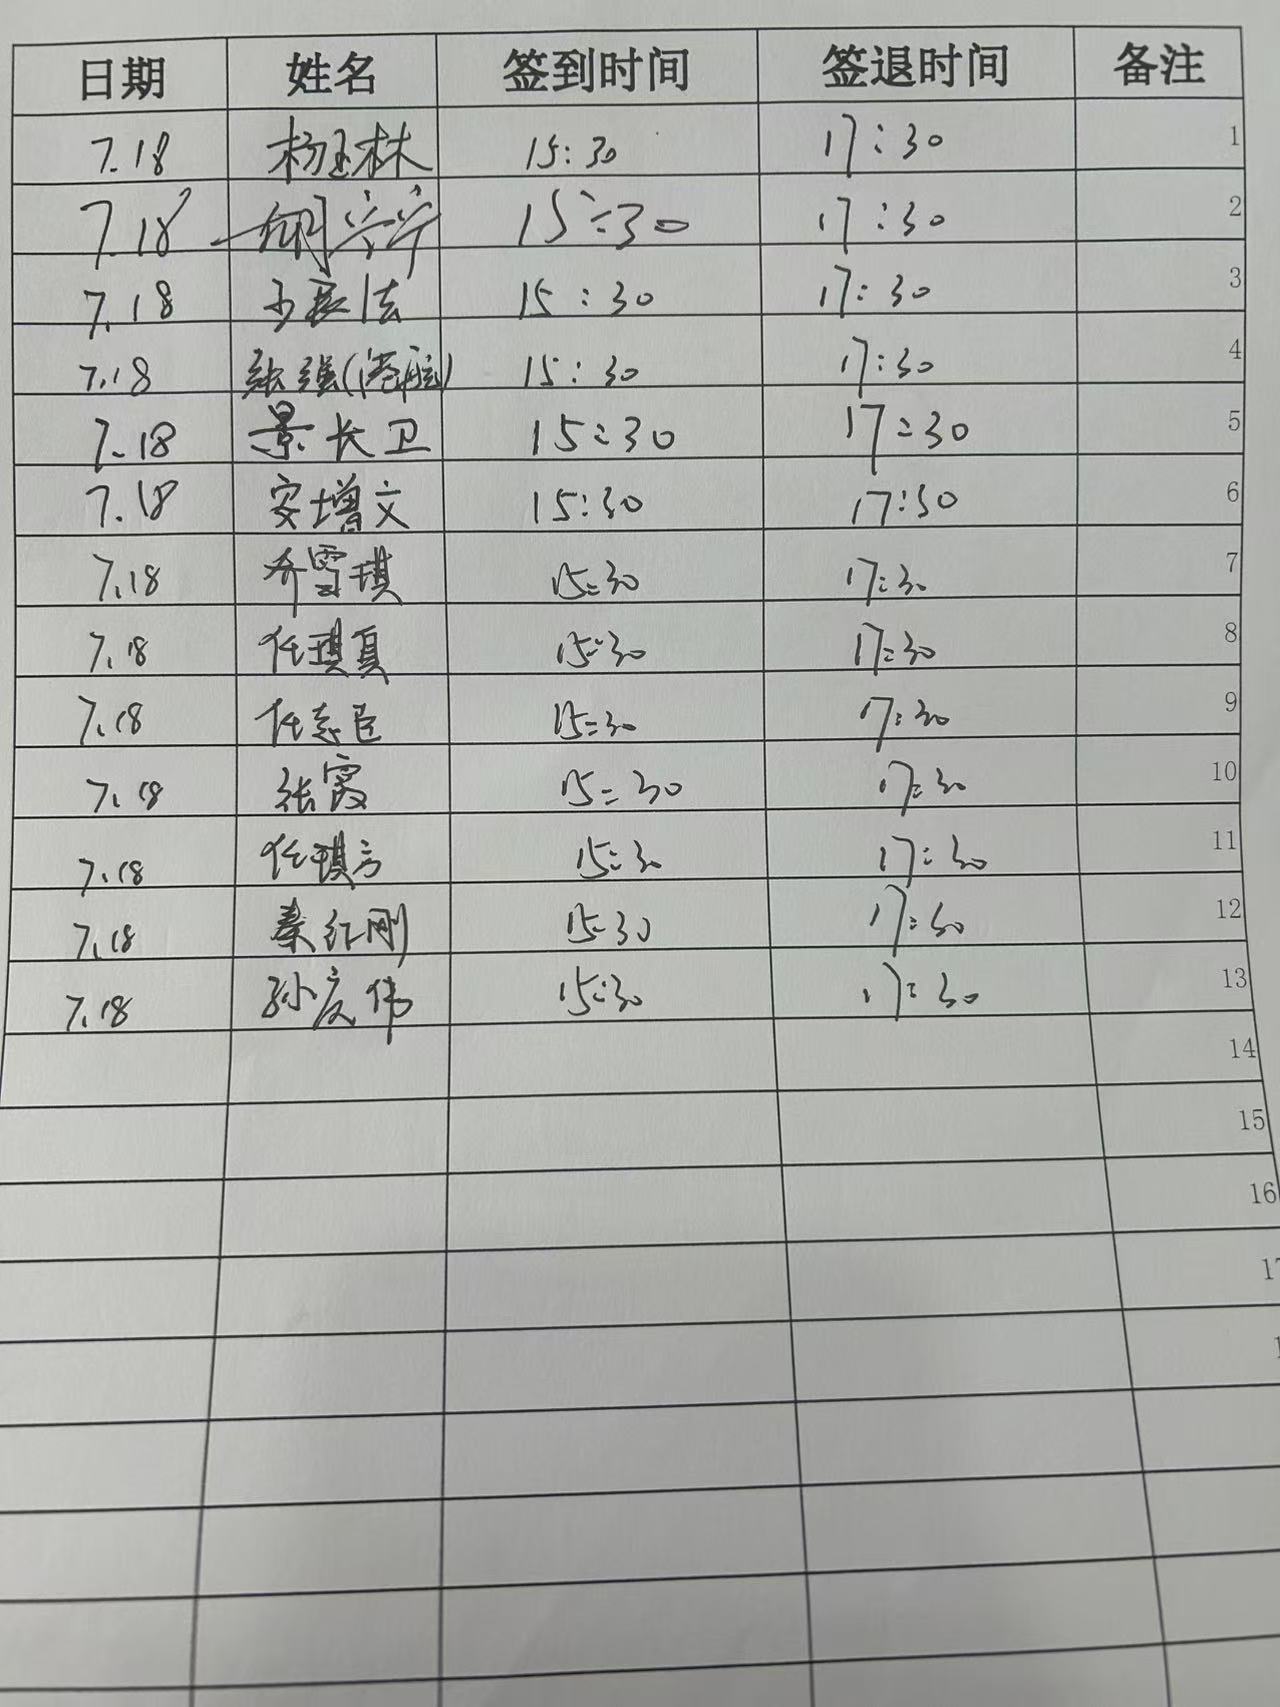 日期 姓名 签到时间 签退时间 备注
7.18 杨玉林 15:30 17:30 1
7.18 15:30 17:30 2
7.18 15:30 17:30 3
7.18 张强 15:30 17:30 4
7.18 景长卫 15:30 17:30 5
7.18 安增文 15:30 17:30 6
7.18 乔雪琪 15:30 17:30 7
7.18 任琪真 15:30 17:30 8
7.18 任志臣 15:30 17:30 9
7.18 张霞 15:30 17:30 10
7.18 任琪方 15:30 17:30 11
7.18 秦红刚 15:30 17:30 12
7.18 孙庆伟 15:30 17:30 13
14
15
16